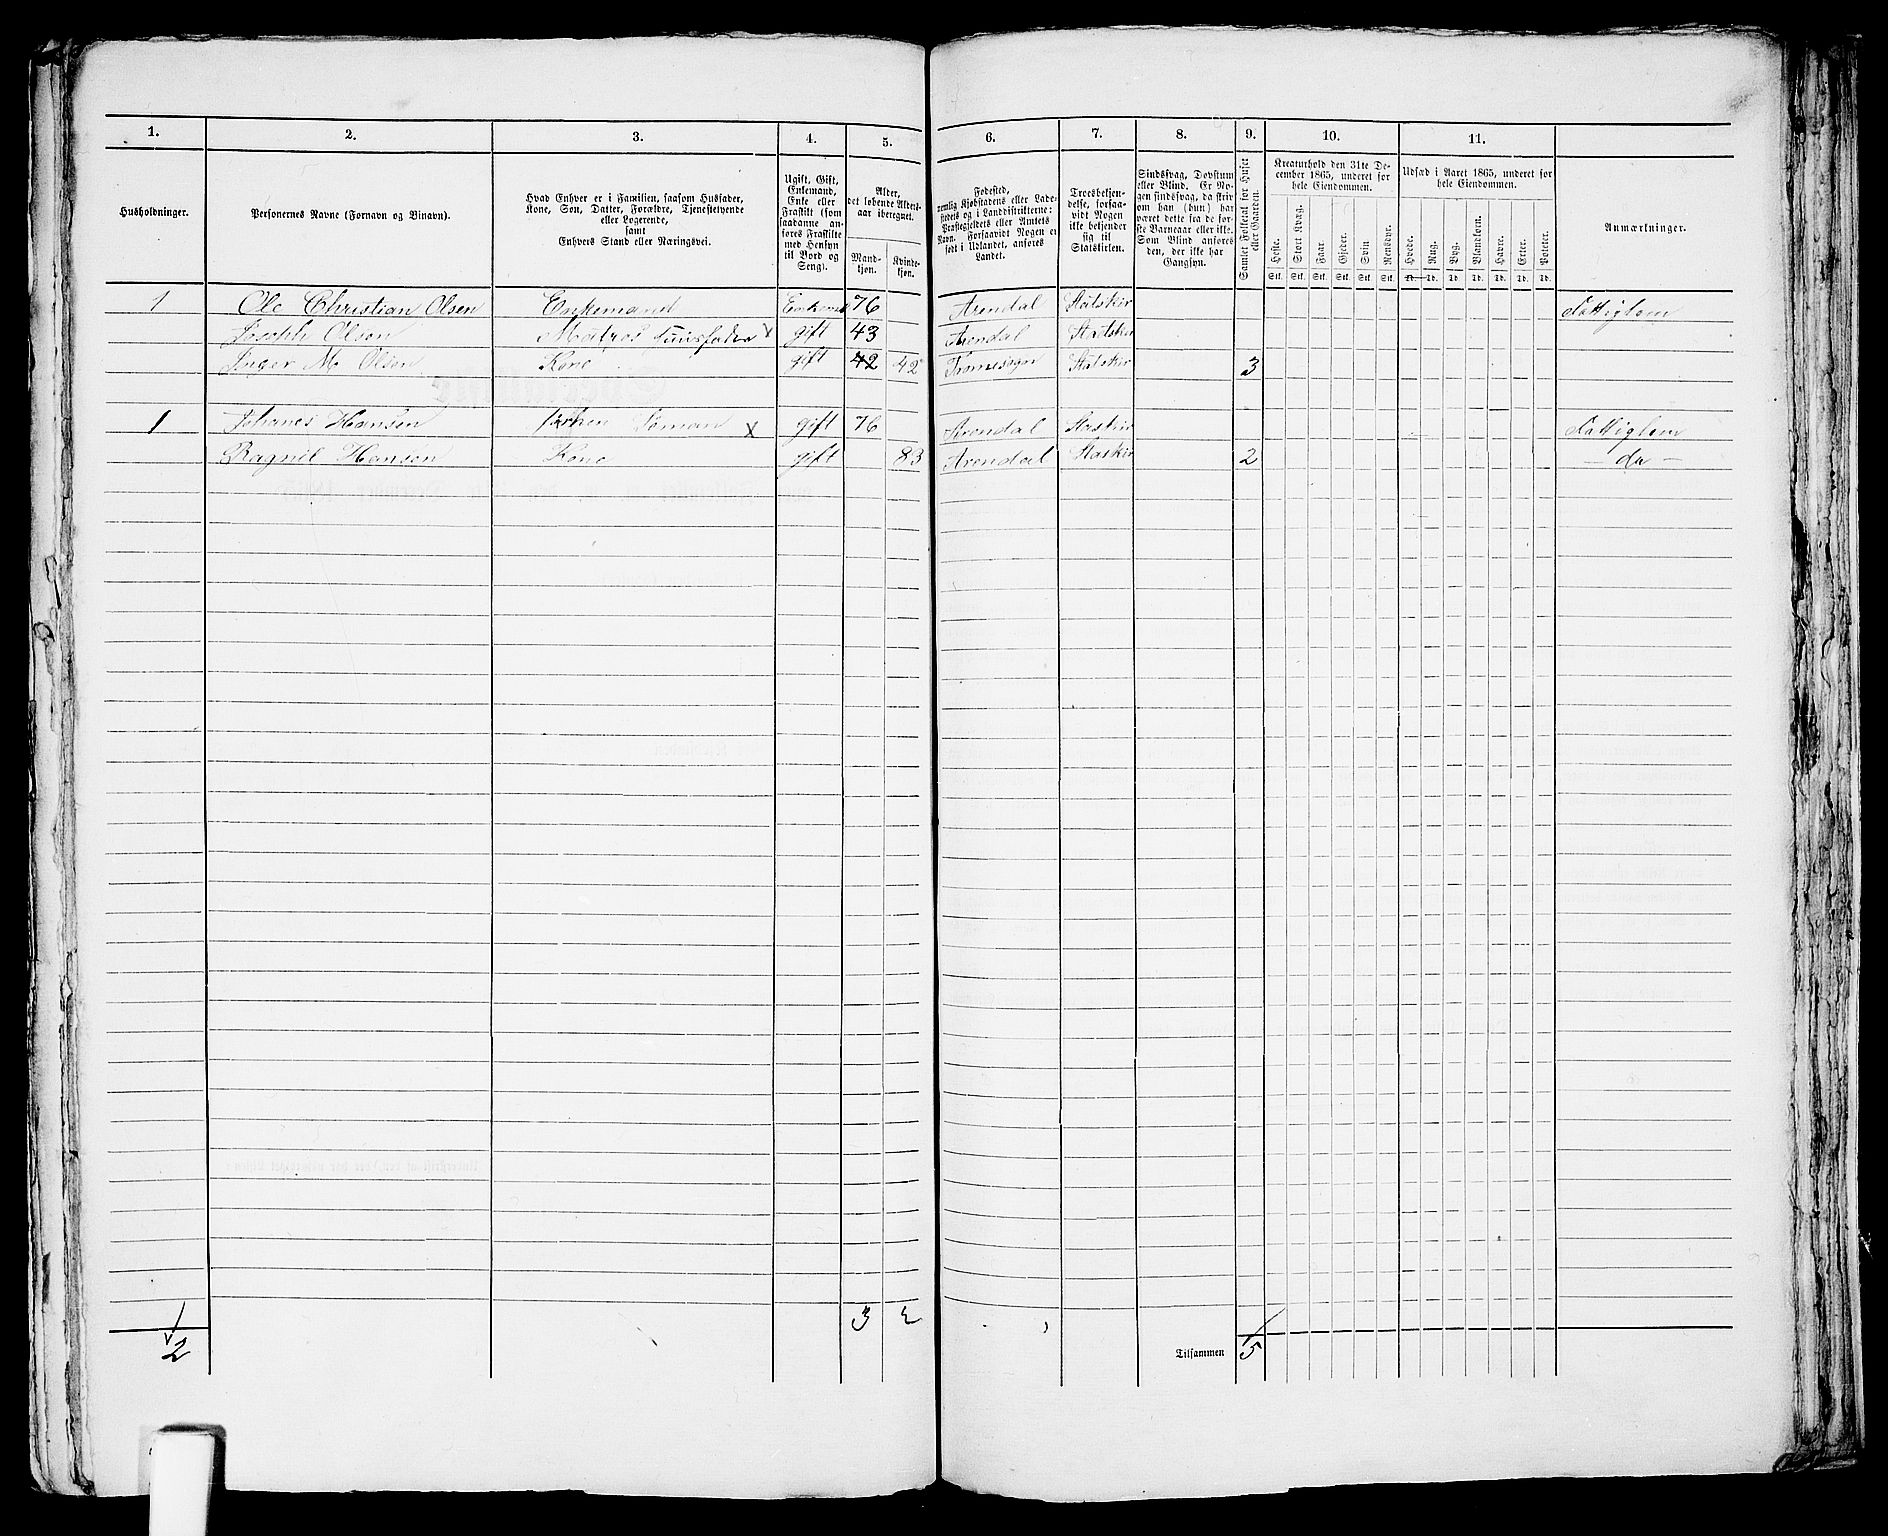 1. 2. 3. 4. 5. 6. 7. 8. 9. 10. 11.
Husholdninger.
Personernes Navne (Fornavn og Binavn).
Hvad Enhver er i Familien, saasom Husfader,
Kone, Søn, Datter, Forældre, Tjenestetyende
eller Logerende,
samt
Enhvers Stand eller Næringsvei.
Ugift, Gift,
Enkemand,
Enke eller
Fraskilt (som
saadanne an-
føres Fraskilte
med Hensyn
til Bord og
Seng).
Alder,
det løbende Alders-
aar iberegnet.
Mand-
kjøn.
Kvinde-
kjøn.
Fødested,
nemlig Kjøbstadens eller Lade-
stedets og i Landdistrikterne:
Præstegjeldets eller Amtets
Navn. Forsaavidt Nogen er
født i Udlandet, anføres
Landet.
Troesbekjen-
delse, forsaa-
vidt Nogen
ikke bekjender
sig til
Statskirken.
Sindssvag, Døvstum
eller Blind. Er No-
gen sindssvag, da skriv
om han (hun) har
været dette fra de før-
ste Barneaar eller ikke.
Som Blind anføres
den, der ikke har
Gangsyn.
Samlet Folketal for Huset
eller Gaarden.
Kreaturhold den 31te De-
cember 1865, underet for
hele Eiendommen.
Heste. Stort Kvæg. Faar. Gjeder. Svin Rensdyr.
Stk. Stk. Stk. Stk. Stk. Stk.
Udsæd i Aaret 1865, underet for
hele Eiendommen.
Hvede. Rug. Byg. Blandkorn. Havre. Erter. Poteter.
Td. Td. Td. Td. Td. Td. Td.
Anmærkninger.
1 Ole Christian Olsen Enkemand Enkemd 76 Arendal Statskir Fattiglem
Joseph Olsen Matros Huusfader x gift 43 Arendal Statskir
Inger M Olsen Kone gift 42 42 Tromøsogn Statskir 3
1 Johanes Hansen Söman x gift 76 Arendal Staskir Fattiglem
Ragnil Hansen Kone gift 83 Arendal Staskir 2 – do –
1 3 2
2 Tilsammen 5